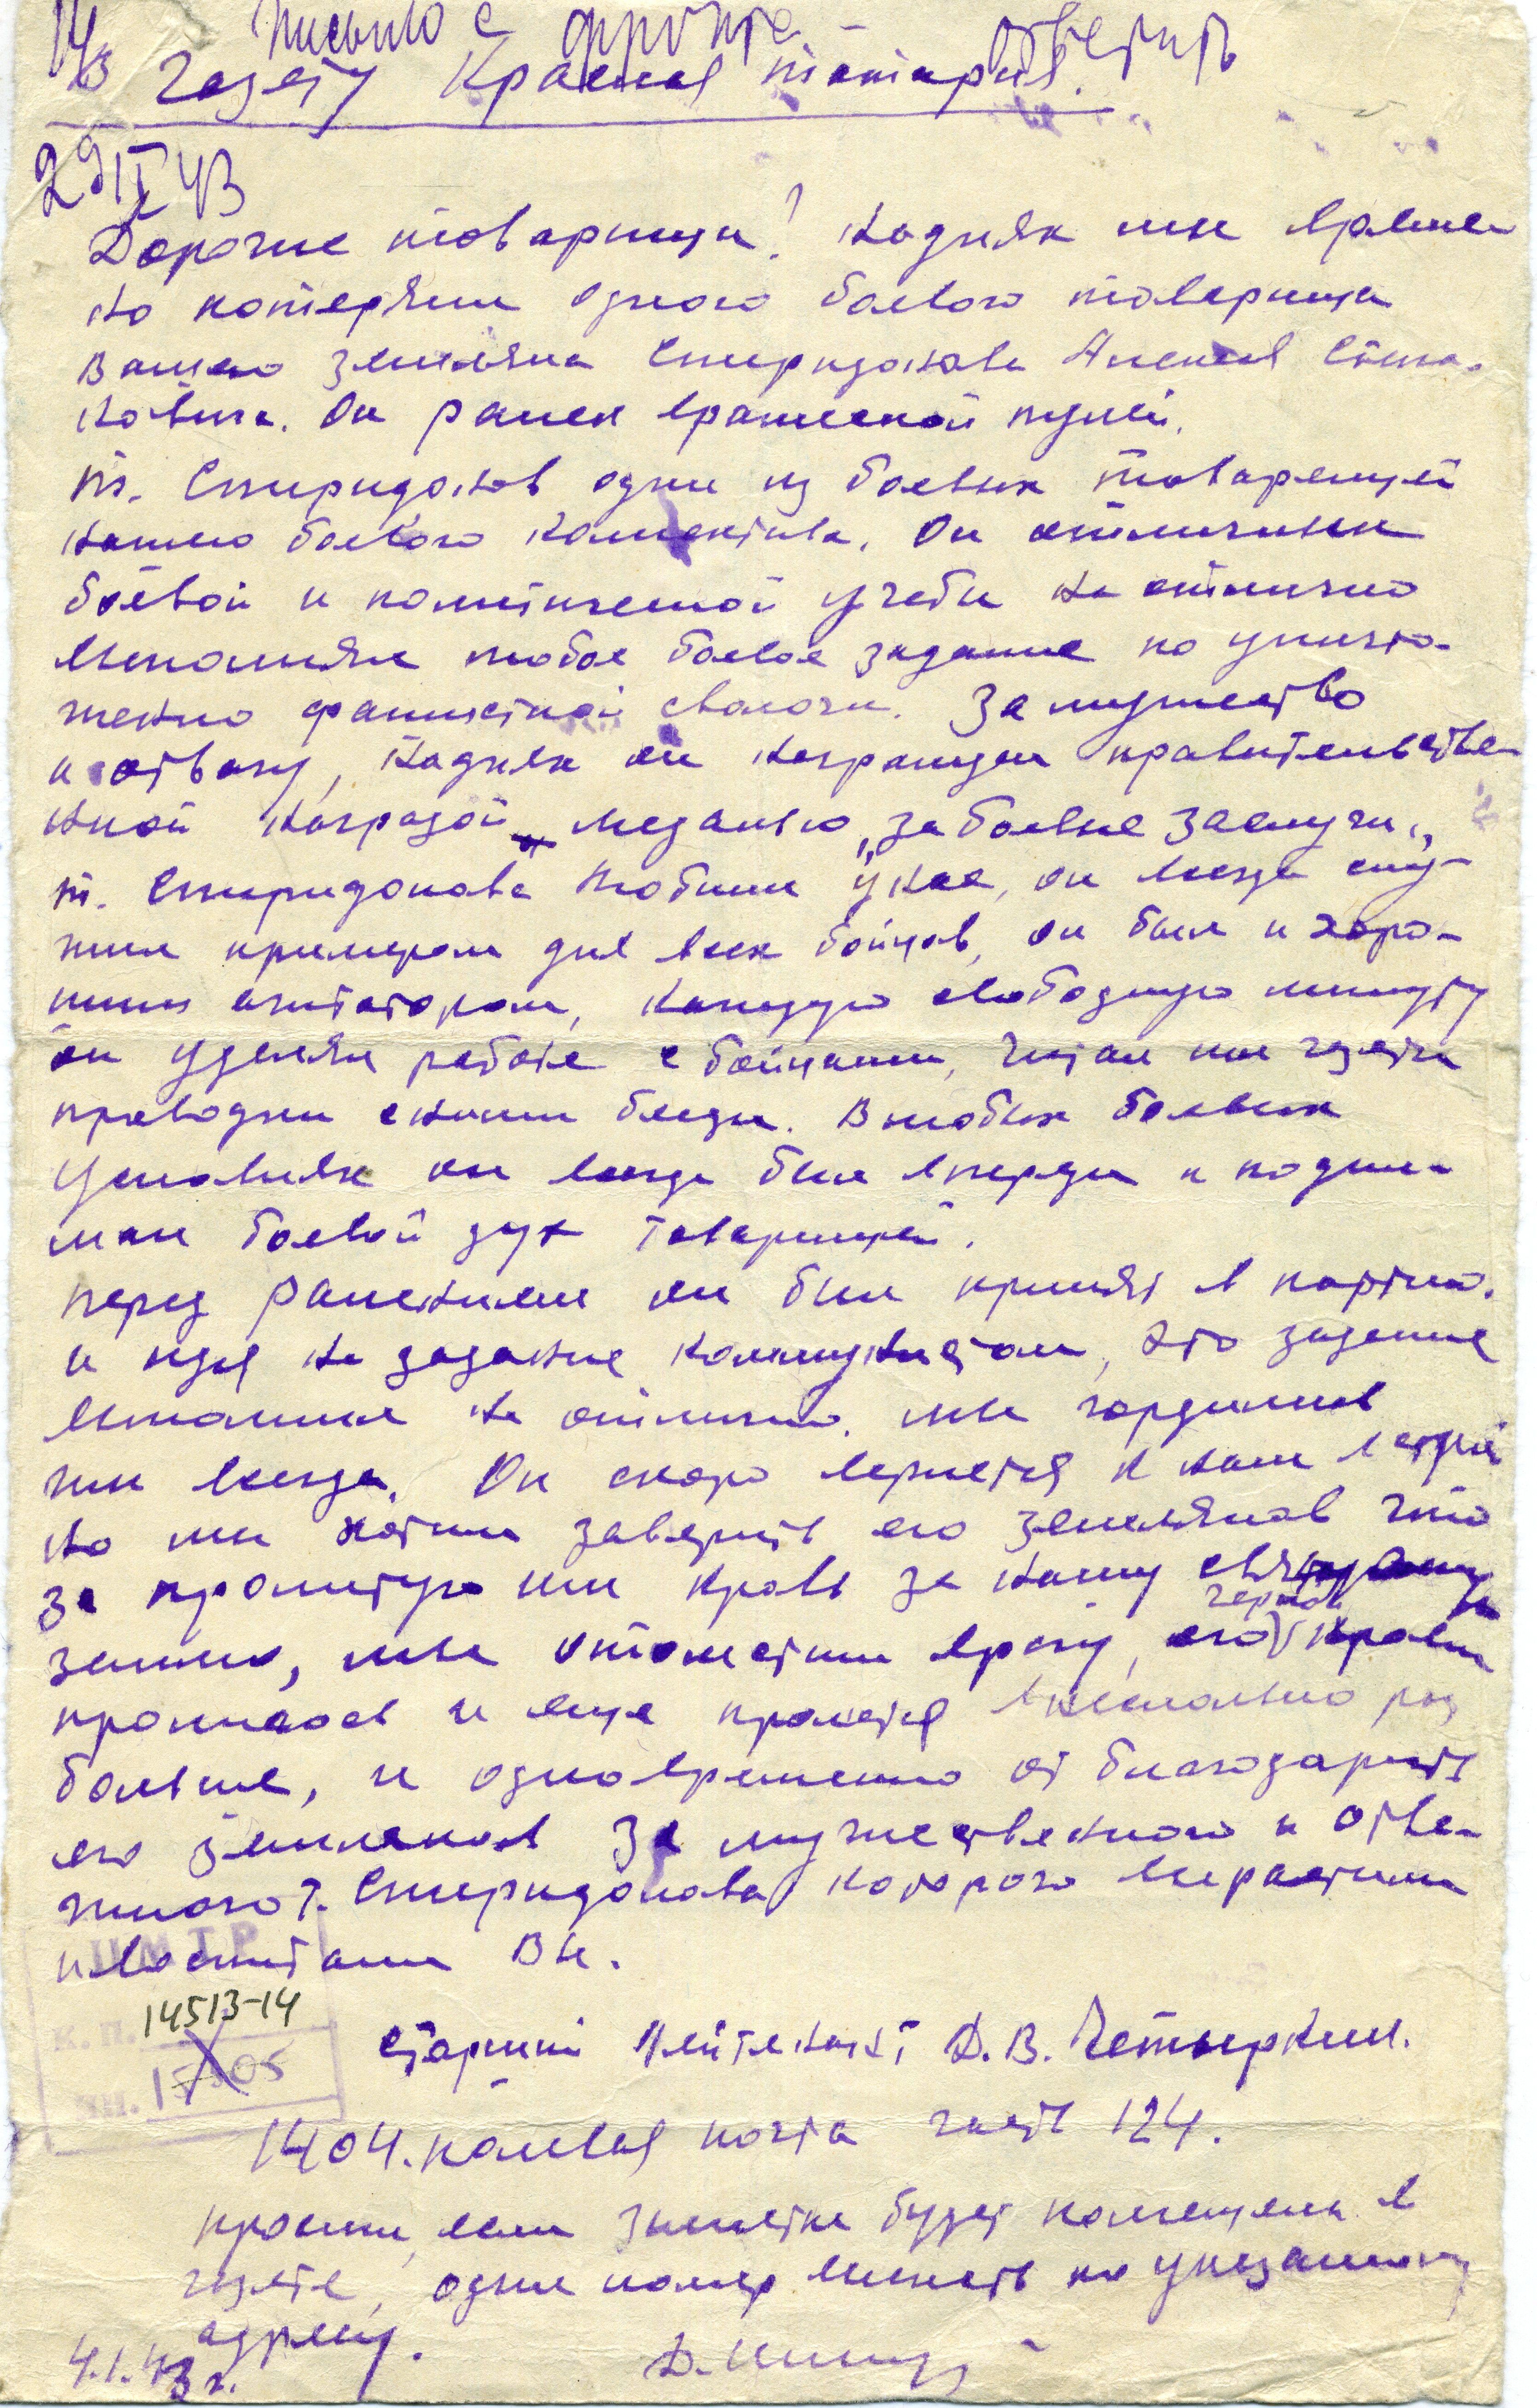 Письмо с фронта - ответить
В газету Красная татария.
29 I 43
Дорогие товарищи! На днях мы времен
но потеряли одного боевого товарища
Вашего земляка Спиридонова Алексея Степа-
новича. Он ранен вражеской пулей.
т. Спиридонов один из боевых товарещей
нашего боевого коллектива. Он отличник
боевой и политической учебы на отлично
выполнял любое боевое задание по уничто-
жению фашисткой сволочи. За мужество
и отвагу, на днях он награжден правительстве
нной наградой медалью „за боевые заслуги„
т. Спиридонова любили у нас, он всегда слу-
жил примером для всех бойцов, он был и хоро-
шим агитатором, каждую свободную минуту
он уделял работе с бойцами, читал им газеты
проводил сними беседы. В любых боевых
условиях он всегда был впереди и подни-
мал боевой дух товарищей.
перед ранением он был принят в партию.
и идя на задание коммунистом, это задание
выполнил на отлично. мы гордимся
им всегда. Он скоро вернется к нам в строй
но мы хотим заверить его земляков что
за пролитую им кровь за нашу
землю, мы отомстим врагу, его черной кровь
пролилась и еще прольется в несколько раз
больше, и одновременно от благодарить
его земляков за мужественного и отва-
жного т. Спиридонова которого вырастили
и воспитали Вы.
Ц М Т Р
К. П. 14513-14
ин.
старший лейтенант Д. В. Четыркин.
1404. полевая почта часть 124.
просим, если заметка будет помещена в
газете, один номер выслать по указанному
адресу.
4.1.43 г.